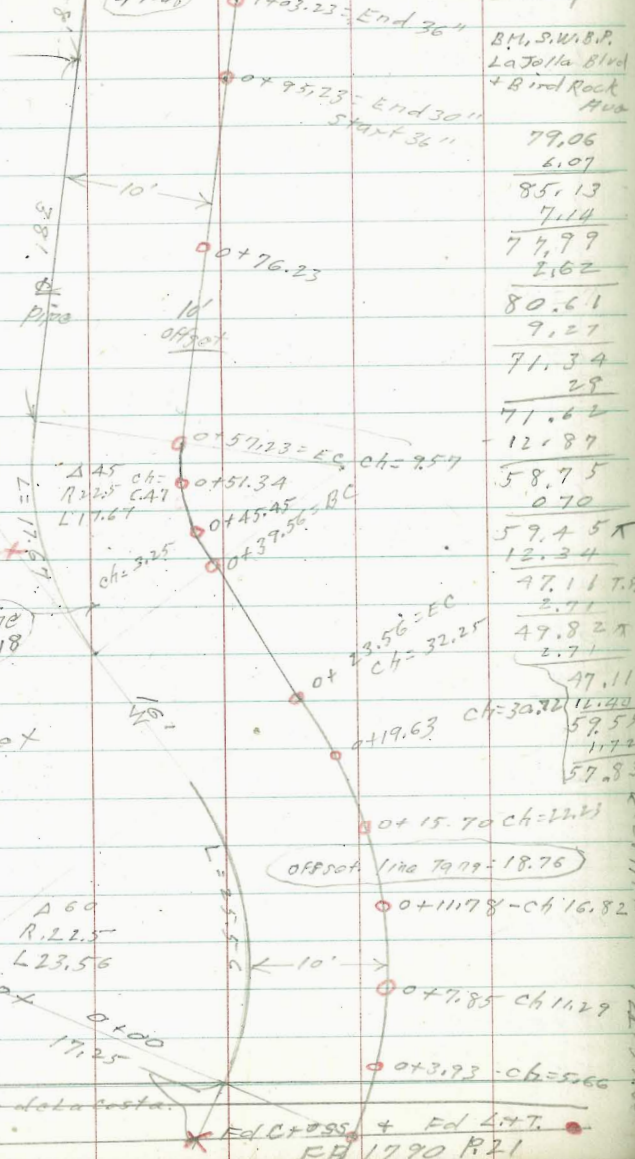 1+03.23 = End 36"
0+95.23 = End 30"
Start 36"
10'
0+76.23
10'
offset
pipe
0+57.23 = EC ch=9.57
0+51.34
0+45.45
0+39.56 = BC
Δ 45 ch=
R 22.5 6.47
L 17.67
L=17.67
ch=3.25
0+23.56 = EC
ch=32.25
16'
0+19.63 ch=30.72
0+15.70 ch=22.23
offset line Tang=18.76
0+11.78 - ch 16.82
Δ 60
R. 22.5
L 23.56
L=23.56
10'
0+7.85 ch 11.29
0+00
17.25
0+3.93 - ch=5.66
de la costa.
Ed L.+T.
FB 1790 P.21
B.M. S.W.B.P.
La Jolla Blvd
+ Bird Rock
Ave
79.06
6.07
85.13
7.14
77.99
2.62
80.61
9.27
71.34
28
71.62
12.87
58.75
0 70
59.45 π
12.34
47.11 T.P.
2.71
49.82 π
2.71
47.11
12.40
59.51
1.72
57.8